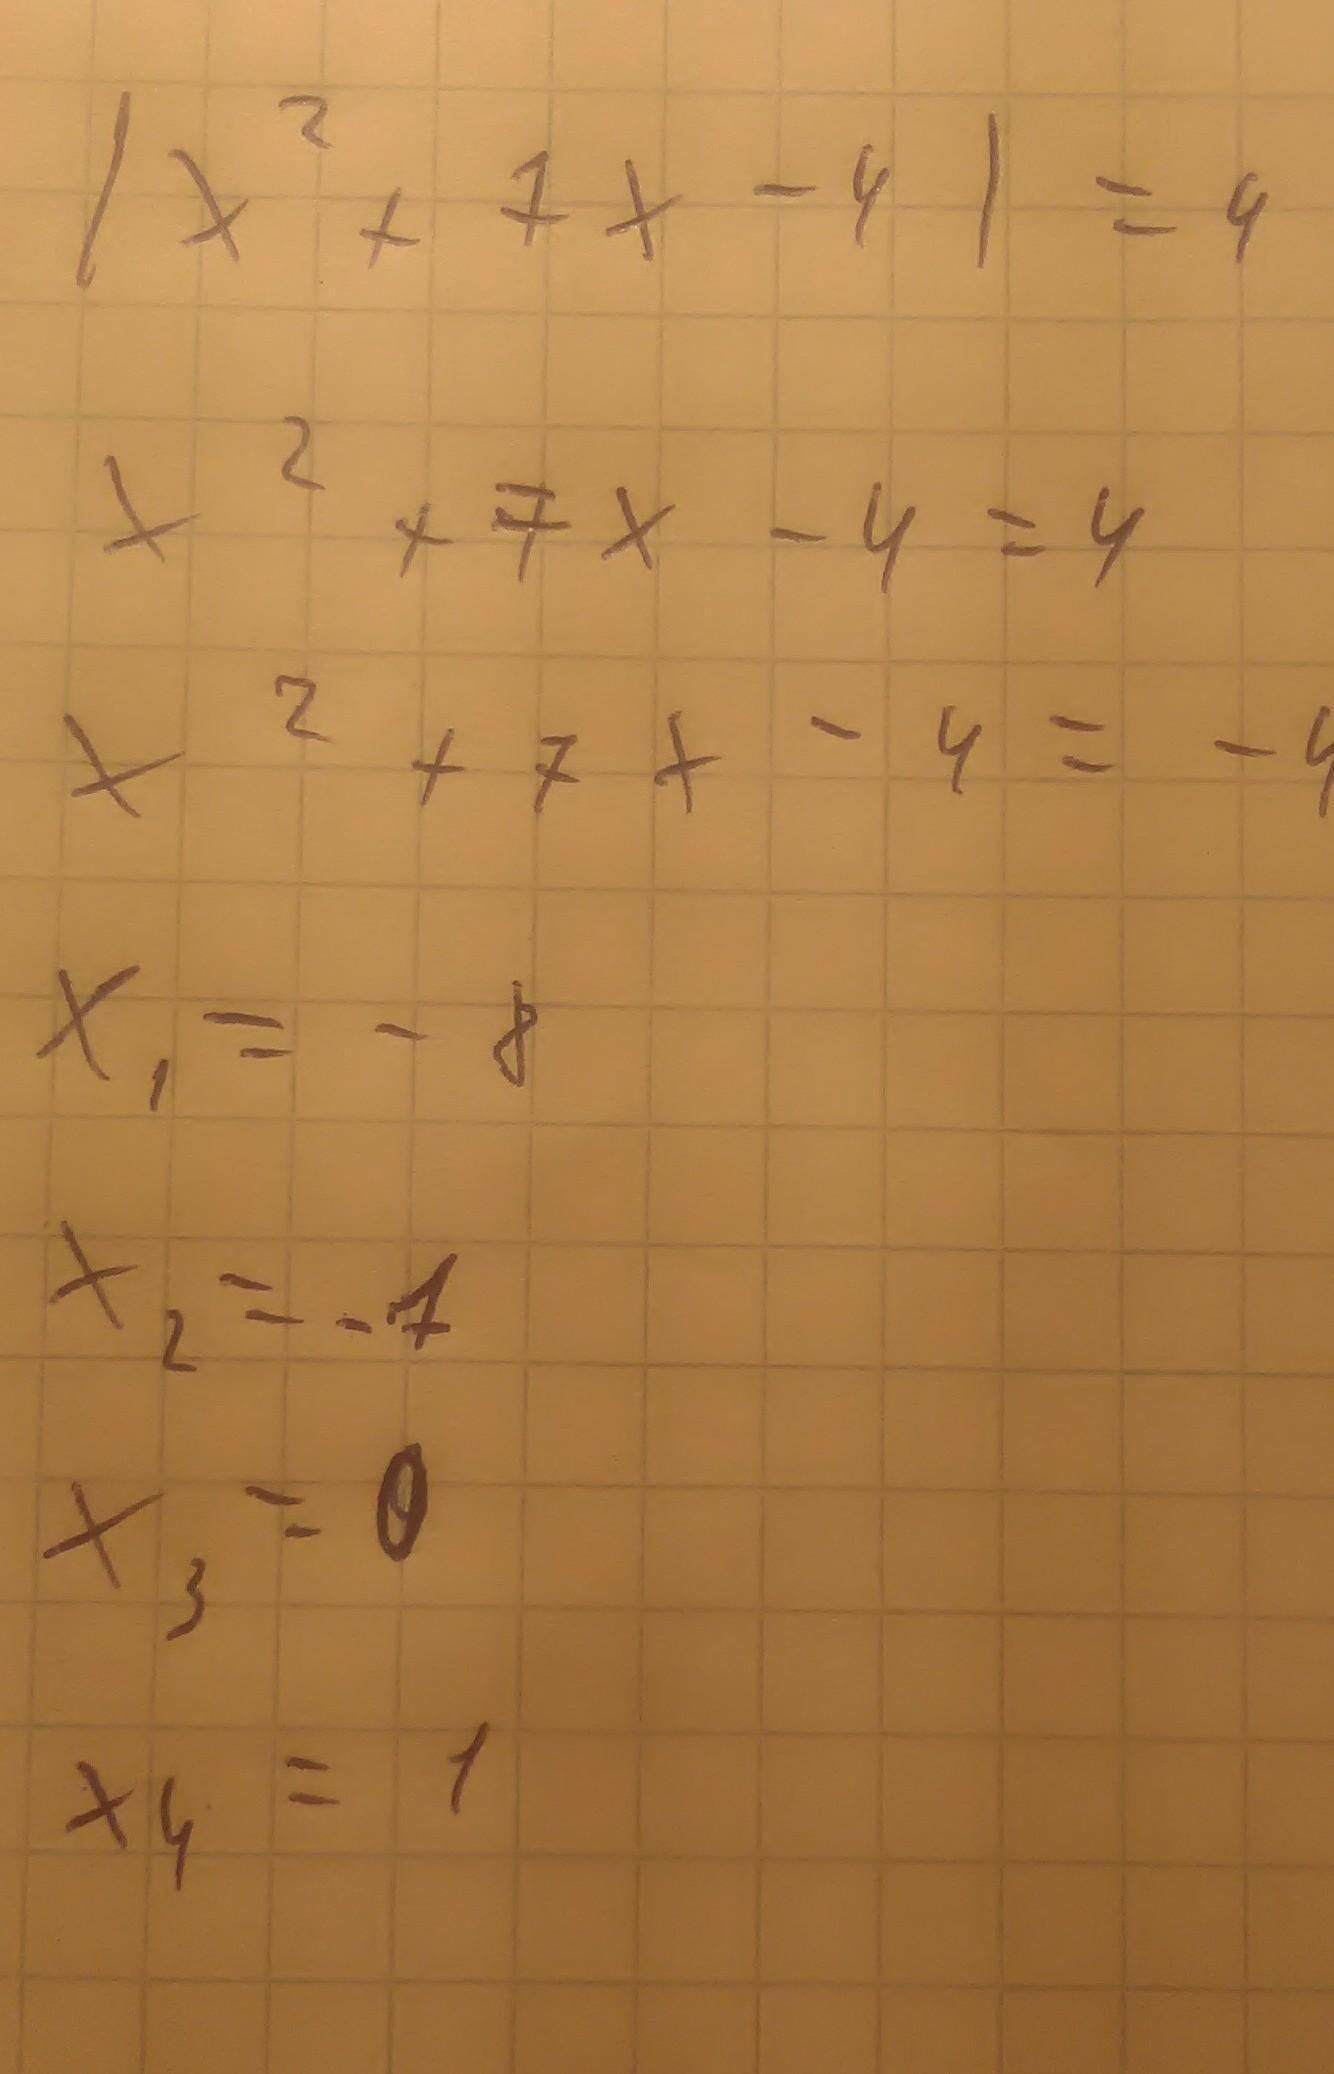 |x² + 7x - 4| = 4
x² + 7x - 4 = 4
x² + 7x - 4 = - 4
x₁ = - 8
x₂ = - 7
x₃ = 0
x₄ = 1